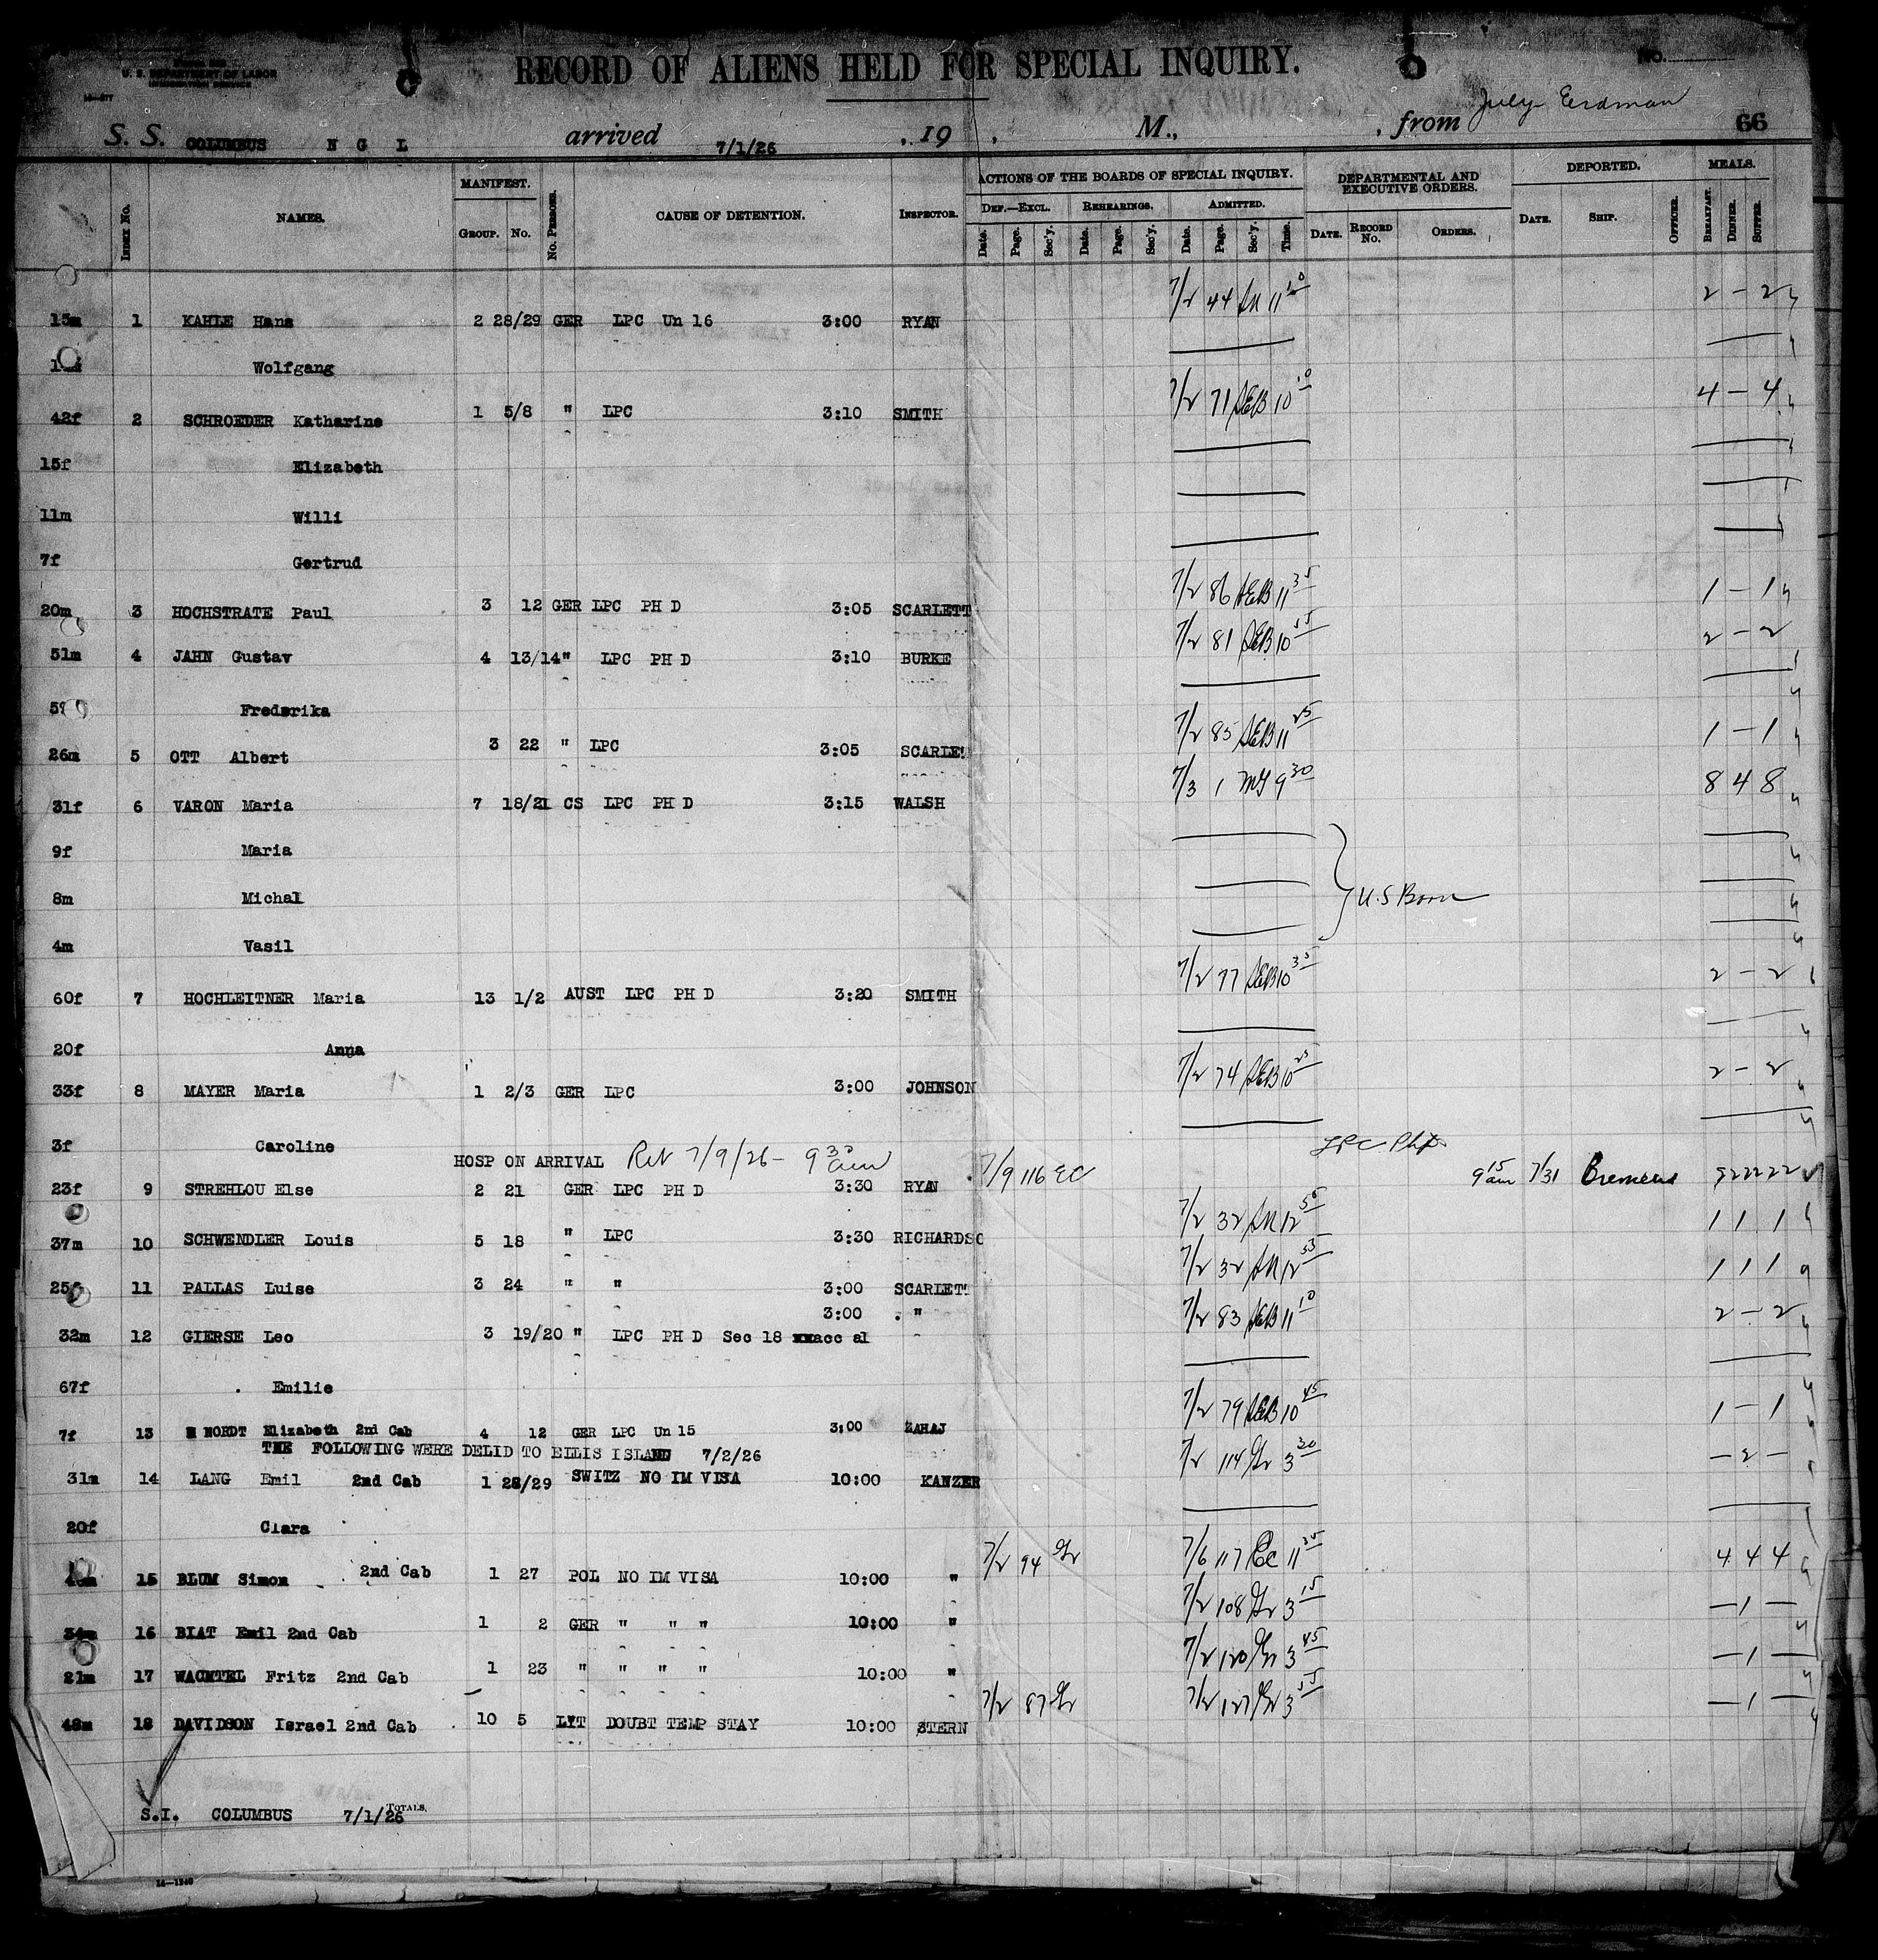 RECORD OF ALIENS HELD FOR SPECIAL INQUIRY.
U. S. DEPARTMENT OF LABOR
IMMIGRATION SERVICE
No.
July- Erdman
S. S. COLUMBUS N G L arrived 7/1/26 , 19 , M., , from 66
INDEX NO. NAMES. MANIFEST. GROUP. NO. NO. PERSONS. CAUSE OF DETENTION. INSPECTOR. ACTIONS OF THE BOARDS OF SPECIAL INQUIRY. DEPARTMENTAL AND EXECUTIVE ORDERS. DEPORTED. MEALS.
DEF.—EXCL. REHEARINGS. ADMITTED.
Date. Page. Sec'y. Date. Page. Sec'y. Date. Page. Sec'y. Time. DATE. RECORD No. ORDERS. DATE. SHIP. OFFICER. BREAKFAST. DINNER. SUPPER.
15m 1 KAHLE Hans 2 28/29 GER LPC Un 16 3:00 RYAN 7/2 44 11 10 2 – 2
Wolfgang
42f 2 SCHROEDER Katharine 1 5/8 " LPC 3:10 SMITH 7/2 71 SEB 10 10 4 – 4
15f Elizabeth
11m Willi
7f Gertrud
20m 3 HOCHSTRATE Paul 3 12 GER LPC PH D 3:05 SCARLETT 7/2 86 SEB 11 35 1 – 1
51m 4 JAHN Gustav 4 13/14 " LPC PH D 3:10 BURKE 7/2 81 SEB 10 55 2 – 2
Frederika
26m 5 OTT Albert 3 22 " LPC 3:05 SCARLET 7/2 85 SEB 11 25 1 – 1
31f 6 VARON Maria 7 18/21 CS LPC PH D 3:15 WALSH 7/3 1 9 30 8 4 8
9f Maria
8m Michal } U.S Born
4m Vasil
60f 7 HOCHLEITNER Maria 13 1/2 AUST LPC PH D 3:20 SMITH 7/2 77 SEB 10 35 2 – 2
20f Anna
33f 8 MAYER Maria 1 2/3 GER LPC 3:00 JOHNSON 7/2 74 SEB 10 25 2 – 2
3f Caroline
HOSP ON ARRIVAL Ret 7/9/26 – 9 30 am
23f 9 STREHLOU Else 2 21 GER LPC PH D 3:30 RYAN 7/9 116 EC LPC PhD 9 15 am 7/31 Bremen
37m 10 SCHWENDLER Louis 5 18 " LPC 3:30 RICHARDSO 7/2 32 12 50 1 1 1
25f 11 PALLAS Luise 3 24 " " 3:00 SCARLETT 7/2 32 12 53 1 1 1
3:00 "
32m 12 GIERSE Leo 3 19/20 " LPC PH D Sec 18 xxacc al 7/2 83 SEB 11 10 2 – 2
67f Emilie
7f 13 NORDT Elizabeth 2nd Cab 4 12 GER LPC Un 15 3:00 ZAHAJ 7/2 79 SEB 10 45 1 – 1
THE FOLLOWING WERE DELID TO ELLIS ISLAND 7/2/26
31m 14 LANG Emil 2nd Cab 1 28/29 SWITZ NO IM VISA 10:00 KANZER 7/2 114 3 30 – 2 –
20f Clara
15 BLUM Simon 2nd Cab 1 27 POL NO IM VISA 10:00 " 7/2 94 7/6 117 11 4 4 4
34m 16 BIAT Emil 2nd Cab 1 2 GER " " " 10:00 " 7/2 108 3 15 – 1 –
21m 17 WACHTEL Fritz 2nd Cab 1 23 " " " " 10:00 " 7/2 120 3 45 – 1 –
48m 18 DAVIDSON Israel 2nd Cab 10 5 LIT DOUBT TEMP STAY 10:00 STERN 7/2 87 7/2 127 3 55 – 1 –
S.I. COLUMBUS 7/1/26 TOTALS.
14—1240